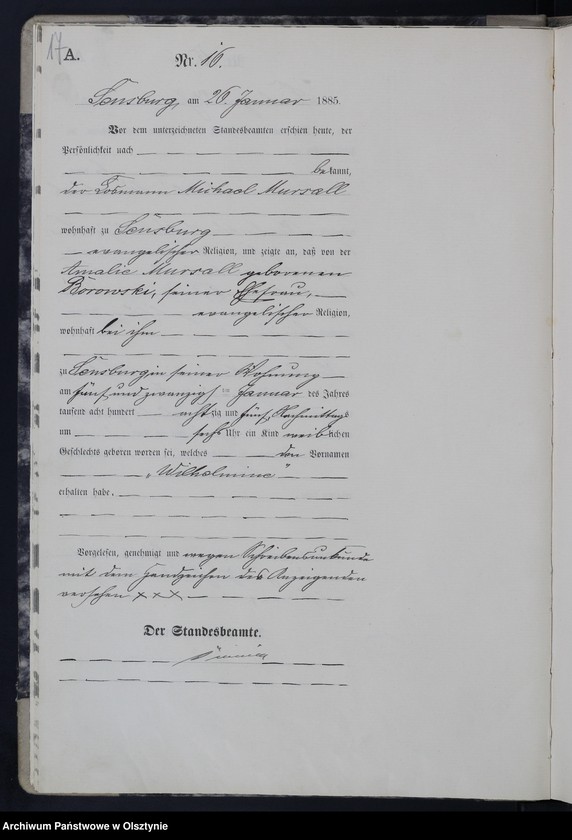 17
A.
Nr. 16.
Sensburg, am 26. Januar 1885.
Vor dem unterzeichneten Standesbeamten erschien heute, der
Persönlichkeit nach
bekannt,
der Losmann Michael Mursall
wohnhaft zu Sensburg
evangelischer Religion, und zeigte an, daß von der
Amalie Mursall geborenen
Borowski, seiner Ehefrau,
evangelischer Religion,
wohnhaft bei ihm
zu Sensburg in seiner Wohnung
am fünf und zwanzigsten Januar des Jahres
tausend acht hundert achtzig und fünf, Nachmittags
um sechs Uhr ein Kind weiblichen
Geschlechts geboren worden sei, welches den Vornamen
„Wilhelmine"
erhalten habe.
Vorgelesen, genehmigt und wegen Schreibensunkunde
mit dem Handzeichen des Anzeigenden
versehen XXX
Der Standesbeamte.
Archiwum Państwowe w Olsztynie